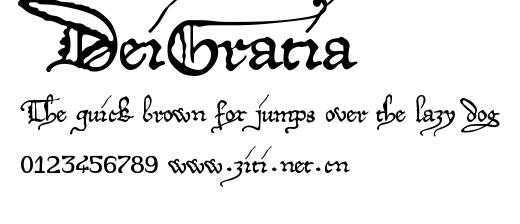 DeiGratia
The quick brown for jumps over the lazy dog
0123456789 www.ziti.net.cn